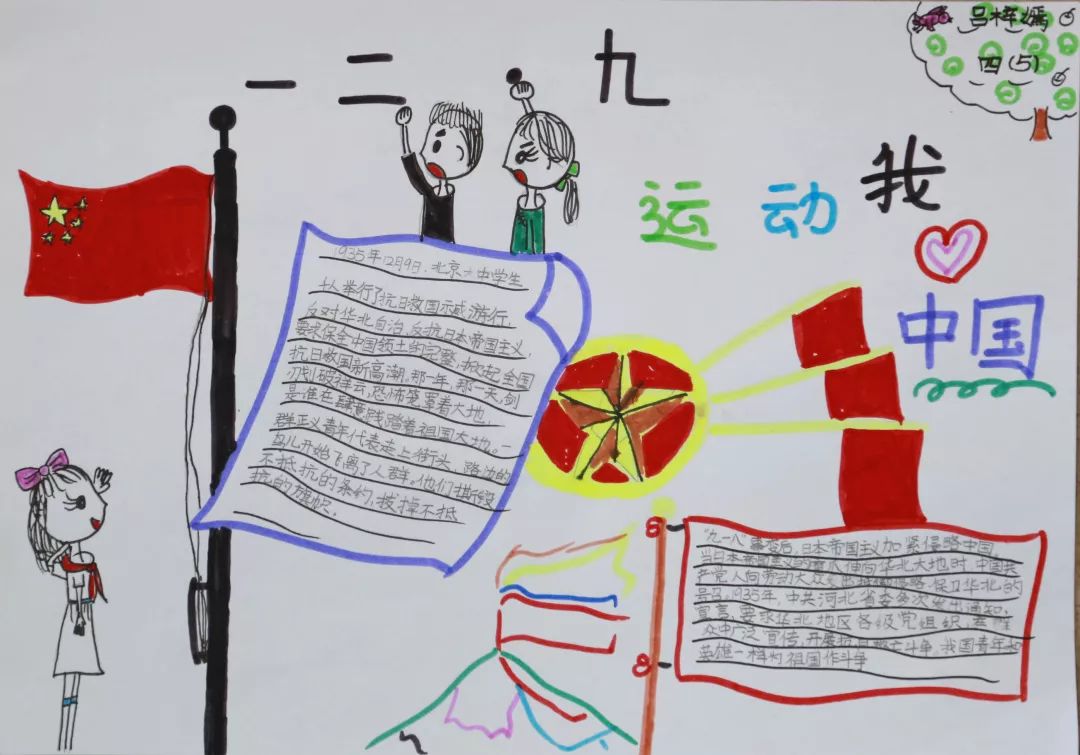 一二·九
运动
我
中国
吕梓嫣
四(5)
1935年12月9日,北京大中学生
千人举行了抗日救国示威游行,
反对华北自治,反抗日本帝国主义
要求保全中国领土的完整,掀起全国
抗日救国新高潮。那一年,那一天,剑
刃划破祥云,恐怖笼罩着大地,
是谁在肆意践踏着祖国大地。一
群正义青年代表走上街头,路边的
鸟儿开始飞离了人群。他们撕毁
不抵抗的条约,拔掉不抵
抗的旗帜。
"九一八"事变后,日本帝国主义加紧侵略中国。
当日本帝国主义的魔爪伸向华北大地时,中国共
产党人向劳动大众发出 保卫华北的
号召。1935年,中共河北省委多次发出通知、
宣言,要求华北地区各级党组织,在
众中广泛宣传,开展抗日 斗争,我国青年如
英雄一样为祖国作斗争